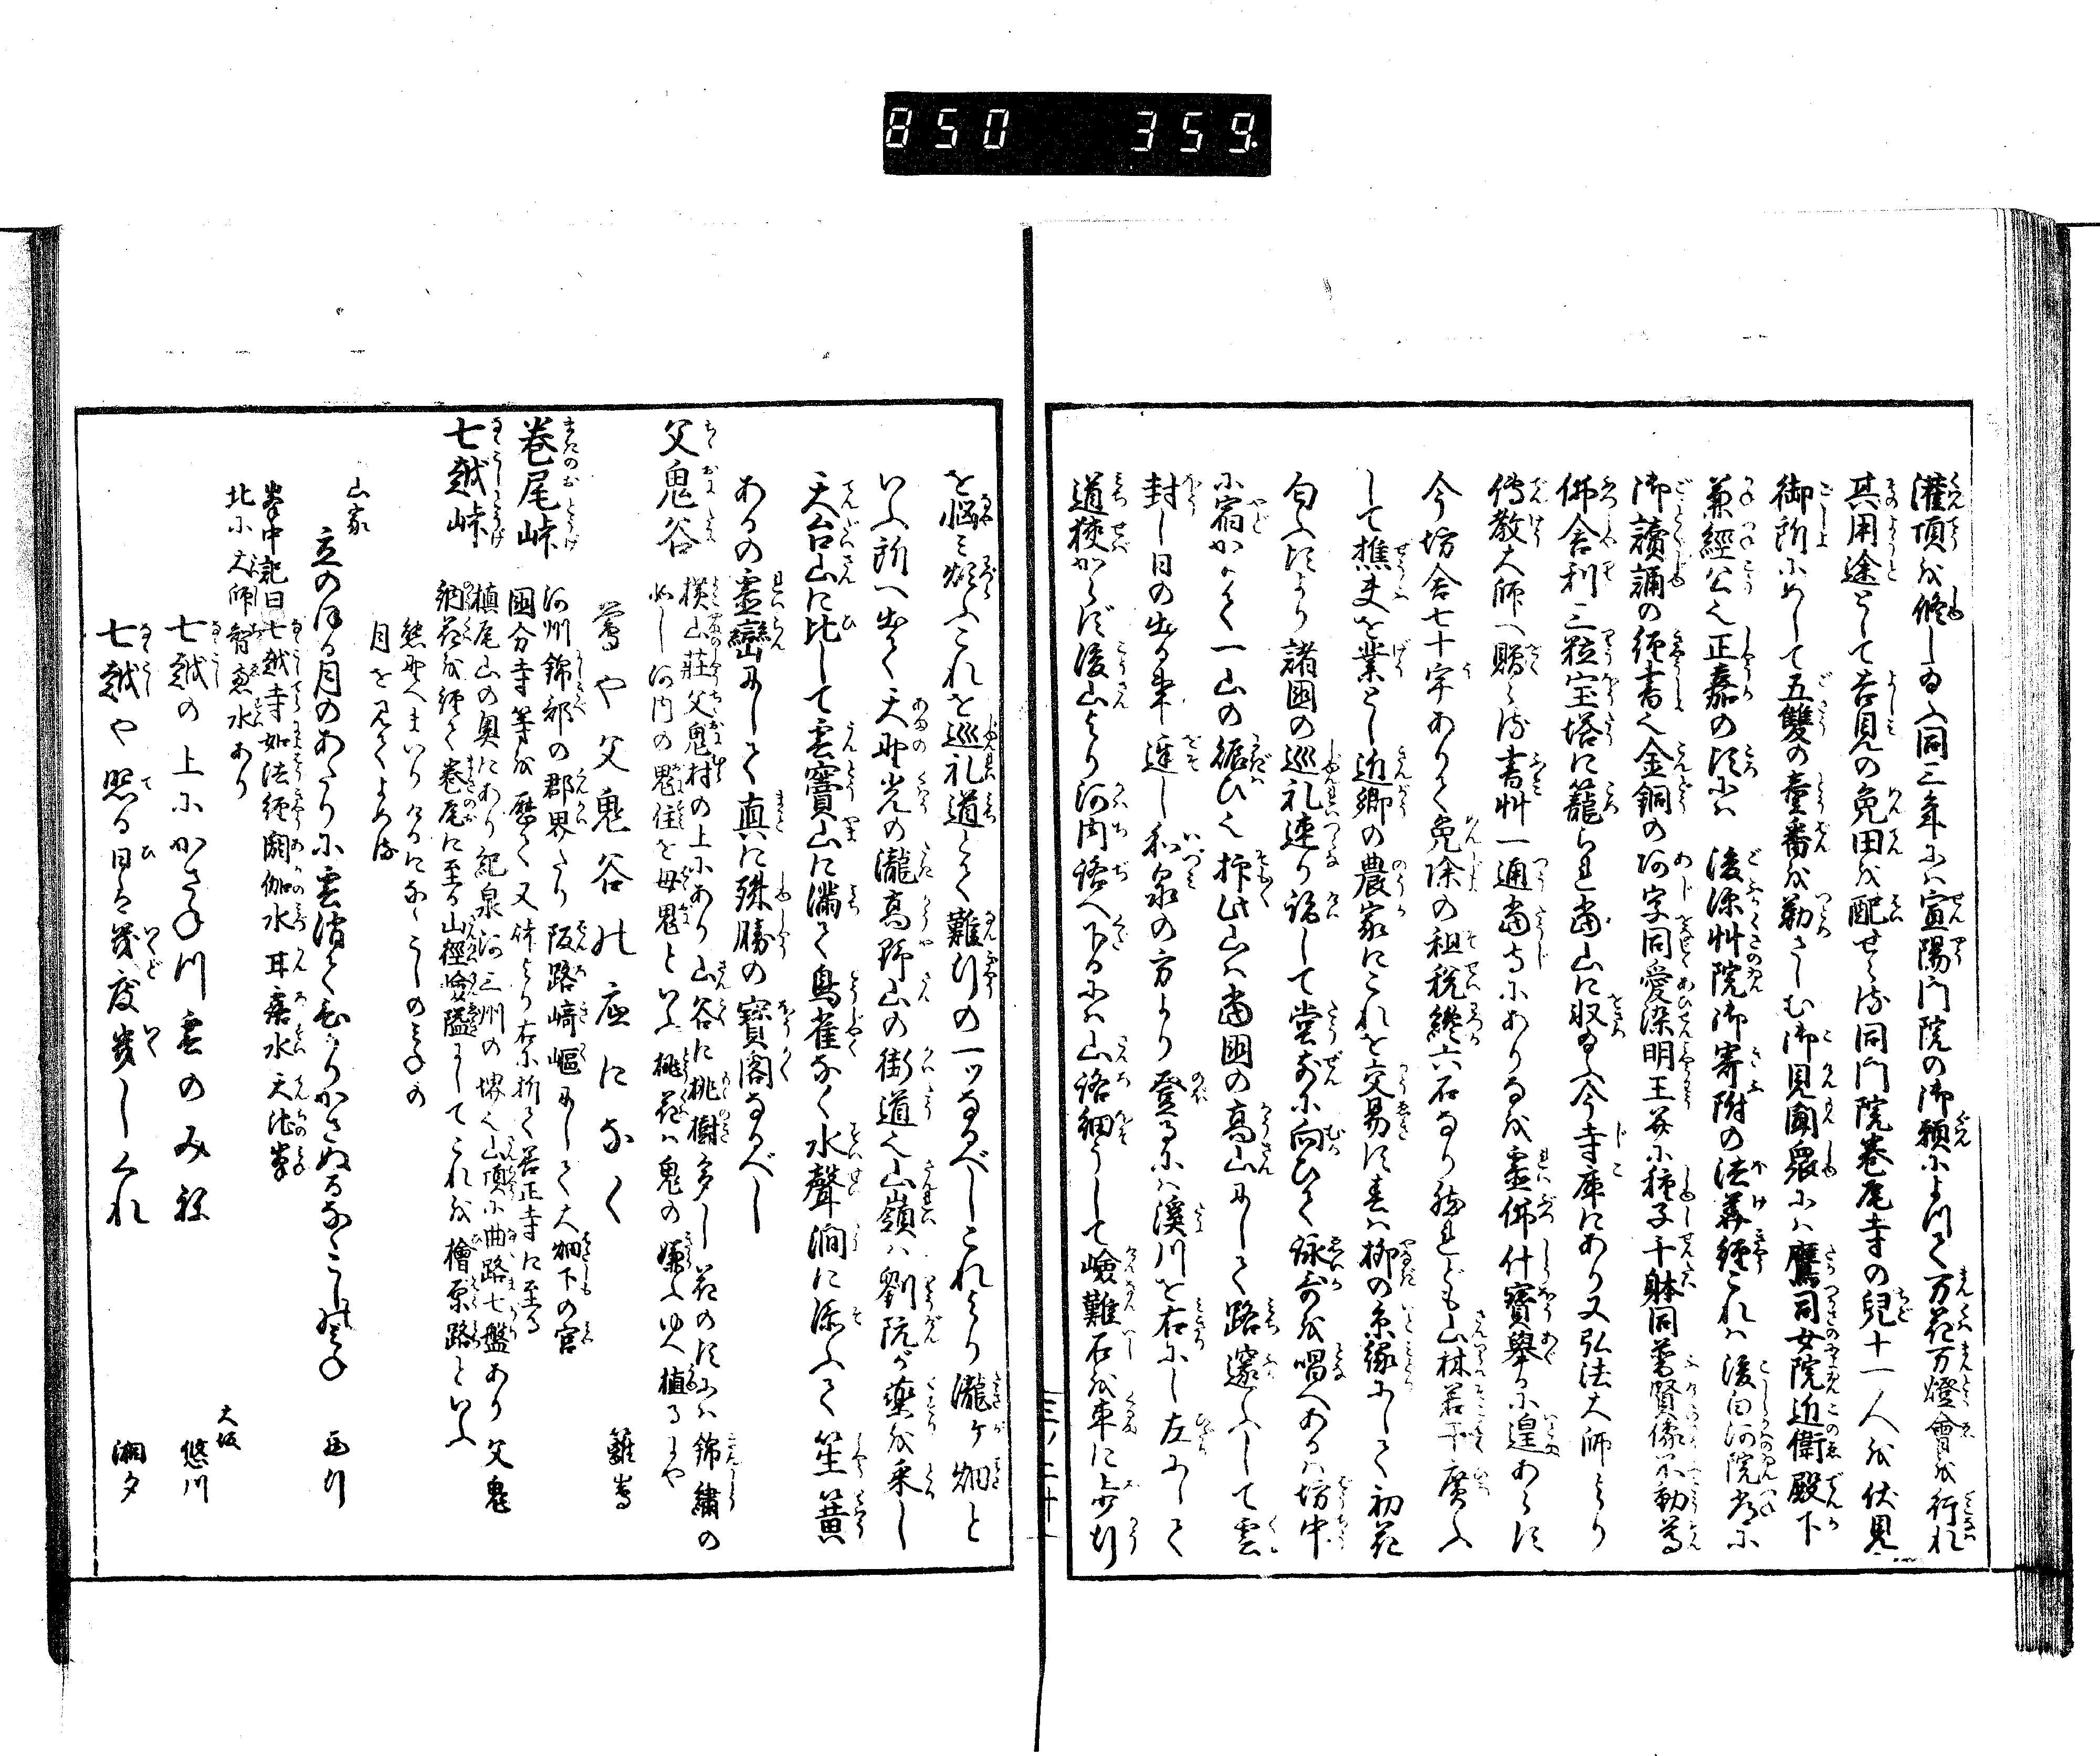 850 359.
灌頂を修しゐふ同二年にハ宣陽門院の御願によつて万花万燈會を行れ
其用途として吉見の免田を配せらる同門院巻尾寺の兒十一人を伏見
御所にめして五雙の童番を勤さしむ御見聞衆にハ鷹司女院近衛殿下
兼經公也正嘉の頃にハ後深艸院御寄附の法華經これハ後白河院常に
御讀誦の經書也金銅の阿字同愛染明王并に種子千躰同普賢像不動尊
佛舎利三粒宝塔に籠られ當山に収給ふ今寺庫にあり又弘法大師より
傳教大師へ贈らる書艸一通當寺にありるを霊佛什寶擧るに遑あらず
今坊舎七十宇ありて免除の租税纔六石なり然れども山林若干廣ふ
して樵夫を業とし近郷の農家にこれを交易す春ハ柳の糸緑にして初花
匂ふ頃より諸國の巡礼連り詣して堂前に向ひて詠哥を唱へあるハ坊中
に宿かりて一山の賑ひ也抑此山ハ當国の高山にして路邃ふして雲
封し日の出る事遅し和泉の方より登るにハ溪川を右にし左にして
道狭からず後山より河内路へ下るにハ山路細うして嶮難石を車に歩行
三ノ二十
を悩ミ煩ふこれを巡礼道とて難行の一ツなるべしこれより瀧ヶ畑と
いふ所へ出て天野光の瀧高野山の街道也山嶺ハ劉阮が藥を采し
天台山に比して雲竇山に満て鳥雀なく水聲澗に添ふて笙簧
あるの霊巒にして真に殊勝の寶閣なるべし
父鬼谷 横山莊父鬼村の上にあり山谷に桃樹多し花の頃にハ錦繍の
如し河内の鬼住を母鬼といふ桃花ハ鬼の嫌ふゆへ植るにや
鶯や父鬼谷の庵になく 雛嵩
巻尾峠 河州錦部の郡界なり阪路﨑嶇にして大畑下の宮
國分寺等を歴て又峠より右に折て若正寺に至る
七越峠 槙尾山の奥にあり紀泉河三州の堺也山頂に曲路七盤あり父鬼
納花を經て巻尾に至る山徑嶮隘にしてこれを檜原路といふ
熊野へまいりけるになゝこしのミ子の
月を見てよめる
山家
立のほる月のあたりに雲消て光かさぬるなゝこしの子 西行
峯中記曰七越寺如法經閼伽水耳落水天池峯
北に大師智恵水あり
七越の上にかさ子川雲のみ祢 大坂 悠川
七越や照る日を幾度幾しくれ 湘夕